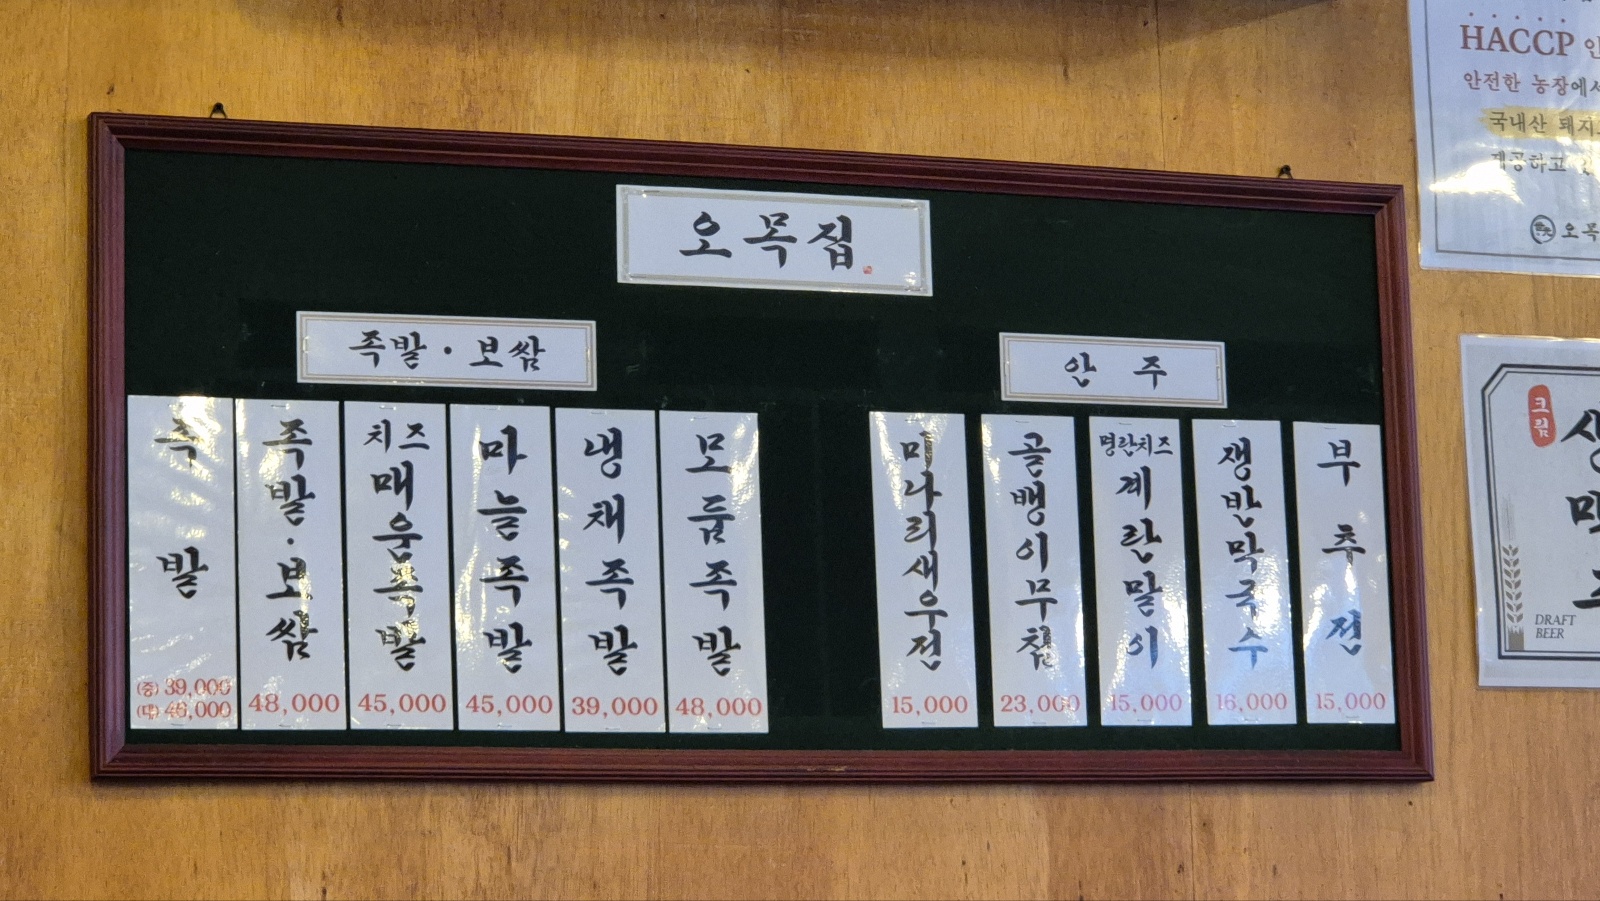 오목집
족발·보쌈
족발
(중) 39,000
(대) 46,000
족발·보쌈
48,000
치즈
매운족발
45,000
마늘족발
45,000
냉채족발
39,000
모듬족발
48,000
안주
미나리새우전
15,000
골뱅이무침
23,000
명란치즈
계란말이
15,000
쟁반막국수
16,000
부추전
15,000
HACCP
안전한 농장에서
국내산
제공하고
크림
DRAFT
BEER